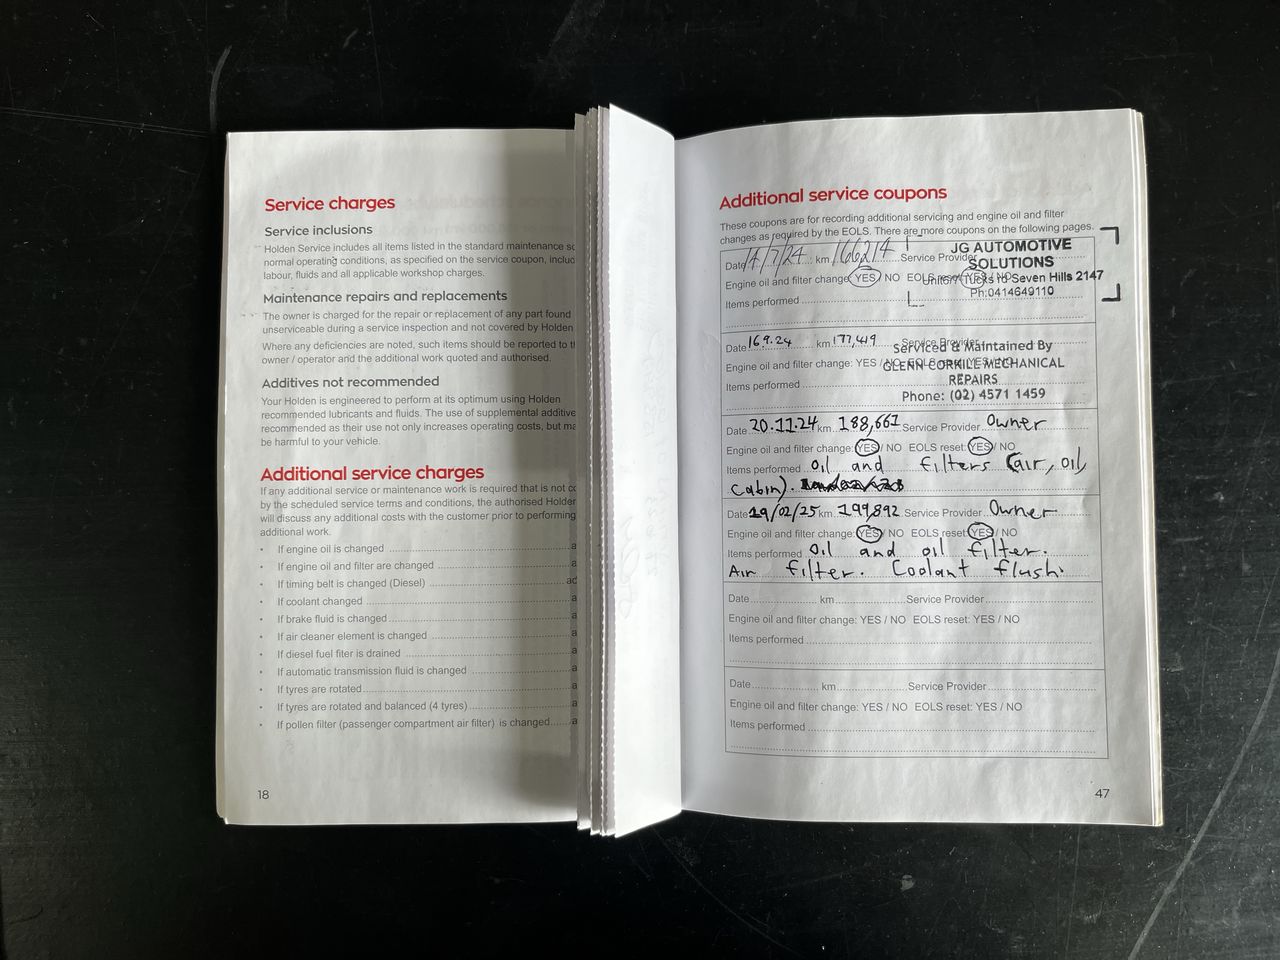 Service charges
Service inclusions
Holden Service includes all items listed in the standard maintenance sc
normal operating conditions, as specified on the service coupon, includ
labour, fluids and all applicable workshop charges.
Maintenance repairs and replacements
The owner is charged for the repair or replacement of any part found
unserviceable during a service inspection and not covered by Holden
Where any deficiencies are noted, such items should be reported to th
owner / operator and the additional work quoted and authorised.
Additives not recommended
Your Holden is engineered to perform at its optimum using Holden
recommended lubricants and fluids. The use of supplemental additive
recommended as their use not only increases operating costs, but ma
be harmful to your vehicle.
Additional service charges
If any additional service or maintenance work is required that is not co
by the scheduled service terms and conditions, the authorised Holder
will discuss any additional costs with the customer prior to performing
additional work.
• If engine oil is changed a
• If engine oil and filter are changed a
• If timing belt is changed (Diesel) ad
• If coolant changed a
• If brake fluid is changed a
• If air cleaner element is changed a
• If diesel fuel fiter is drained a
• If automatic transmission fluid is changed a
• If tyres are rotated a
• If tyres are rotated and balanced (4 tyres) a
• If pollen filter (passenger compartment air filter) is changed a
18
Additional service coupons
These coupons are for recording additional servicing and engine oil and filter
changes as required by the EOLS. There are more coupons on the following pages.
Date 14/7/24 km 166214 Service Provider
JG AUTOMOTIVE
SOLUTIONS
Engine oil and filter change: YES / NO EOLS reset: YES / NO
Rd Seven Hills 2147
Ph:0414649110
Items performed
Date 16.9.24 km 177,419 Service Provider
Serviced & Maintained By
Engine oil and filter change: YES / NO EOLS reset: YES / NO
GLENN CORKILL MECHANICAL
REPAIRS
Items performed
Phone: (02) 4571 1459
Date 20.11.24 km 188,661 Service Provider Owner
Engine oil and filter change: YES / NO EOLS reset: YES / NO
Items performed Oil and filters (air, oil,
Cabin).
Date 19/02/25 km 199,892 Service Provider Owner
Engine oil and filter change: YES / NO EOLS reset: YES / NO
Items performed Oil and oil filter.
Air filter. Coolant flush.
Date km Service Provider
Engine oil and filter change: YES / NO EOLS reset: YES / NO
Items performed
Date km Service Provider
Engine oil and filter change: YES / NO EOLS reset: YES / NO
Items performed
47